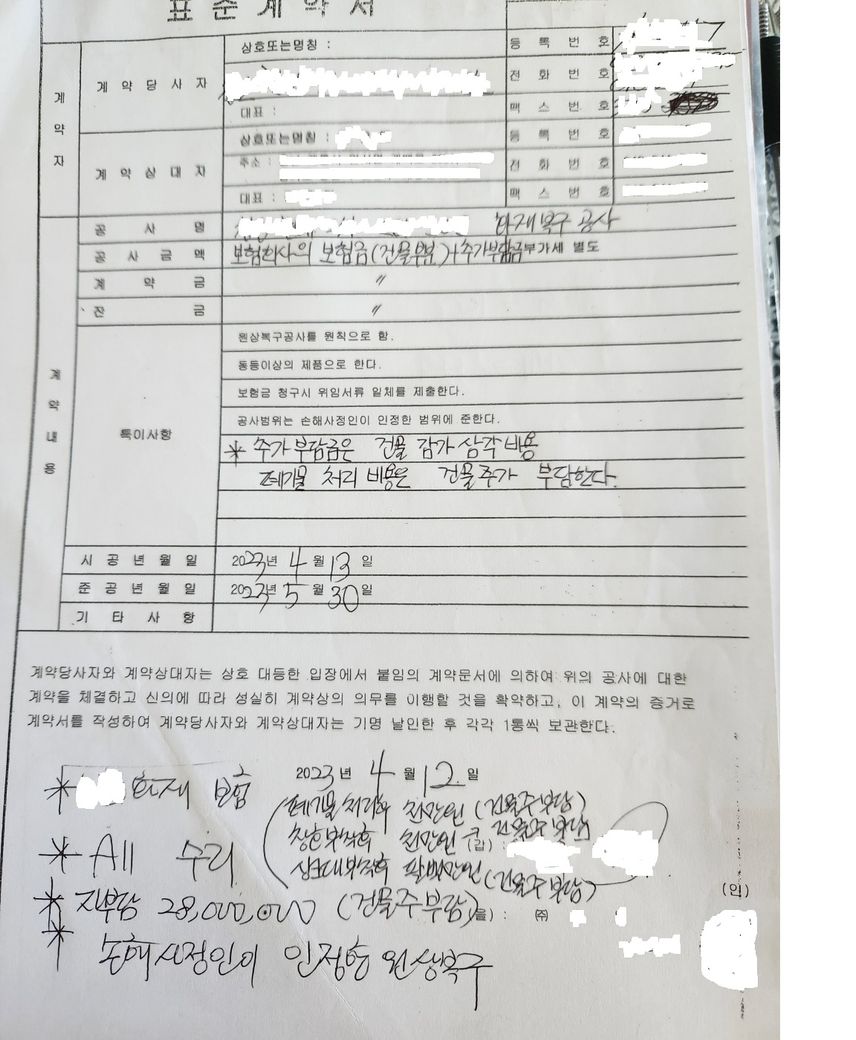 표 준 계 약 서
계약자
계 약 당 사 자
상호또는명칭 :
등 록 번 호
전 화 번 호
대표 :
팩 스 번 호
계 약 상 대 자
상호또는명칭 :
등 록 번 호
주소 :
전 화 번 호
대표 :
팩 스 번 호
계약내용
공 사 명
화재복구 공사
공 사 금 액
보험회사의 보험금(건물부분)+추가부담금 부가세 별도
계 약 금
〃
잔 금
〃
특이사항
원상복구공사를 원칙으로 함.
동등이상의 제품으로 한다.
보험금 청구시 위임서류 일체를 제출한다.
공사범위는 손해사정인이 인정한 범위에 준한다.
* 추가부담금은 건물 감가 삼각 비용
폐기물 처리 비용은 건물주가 부담한다.
시 공 년 월 일
2023년 4 월 13 일
준 공 년 월 일
2023년 5 월 30 일
기 타 사 항
계약당사자와 계약상대자는 상호 대등한 입장에서 붙임의 계약문서에 의하여 위의 공사에 대한
계약을 체결하고 신의에 따라 성실히 계약상의 의무를 이행할 것을 확약하고, 이 계약의 증거로
계약서를 작성하여 계약당사자와 계약상대자는 기명 날인한 후 각각 1통씩 보관한다.
2023 년 4 월 12 일
* 화재 보험
폐기물처리비 천만원 (건물주부담)
천만원 건물주부담
(갑) :
* All 수리
팔백만원 (건물주부담)
(인)
* 자부담 28,000,000 (건물주부담)
(을) : ㈜
* 손해사정인이 인정한 원상복구